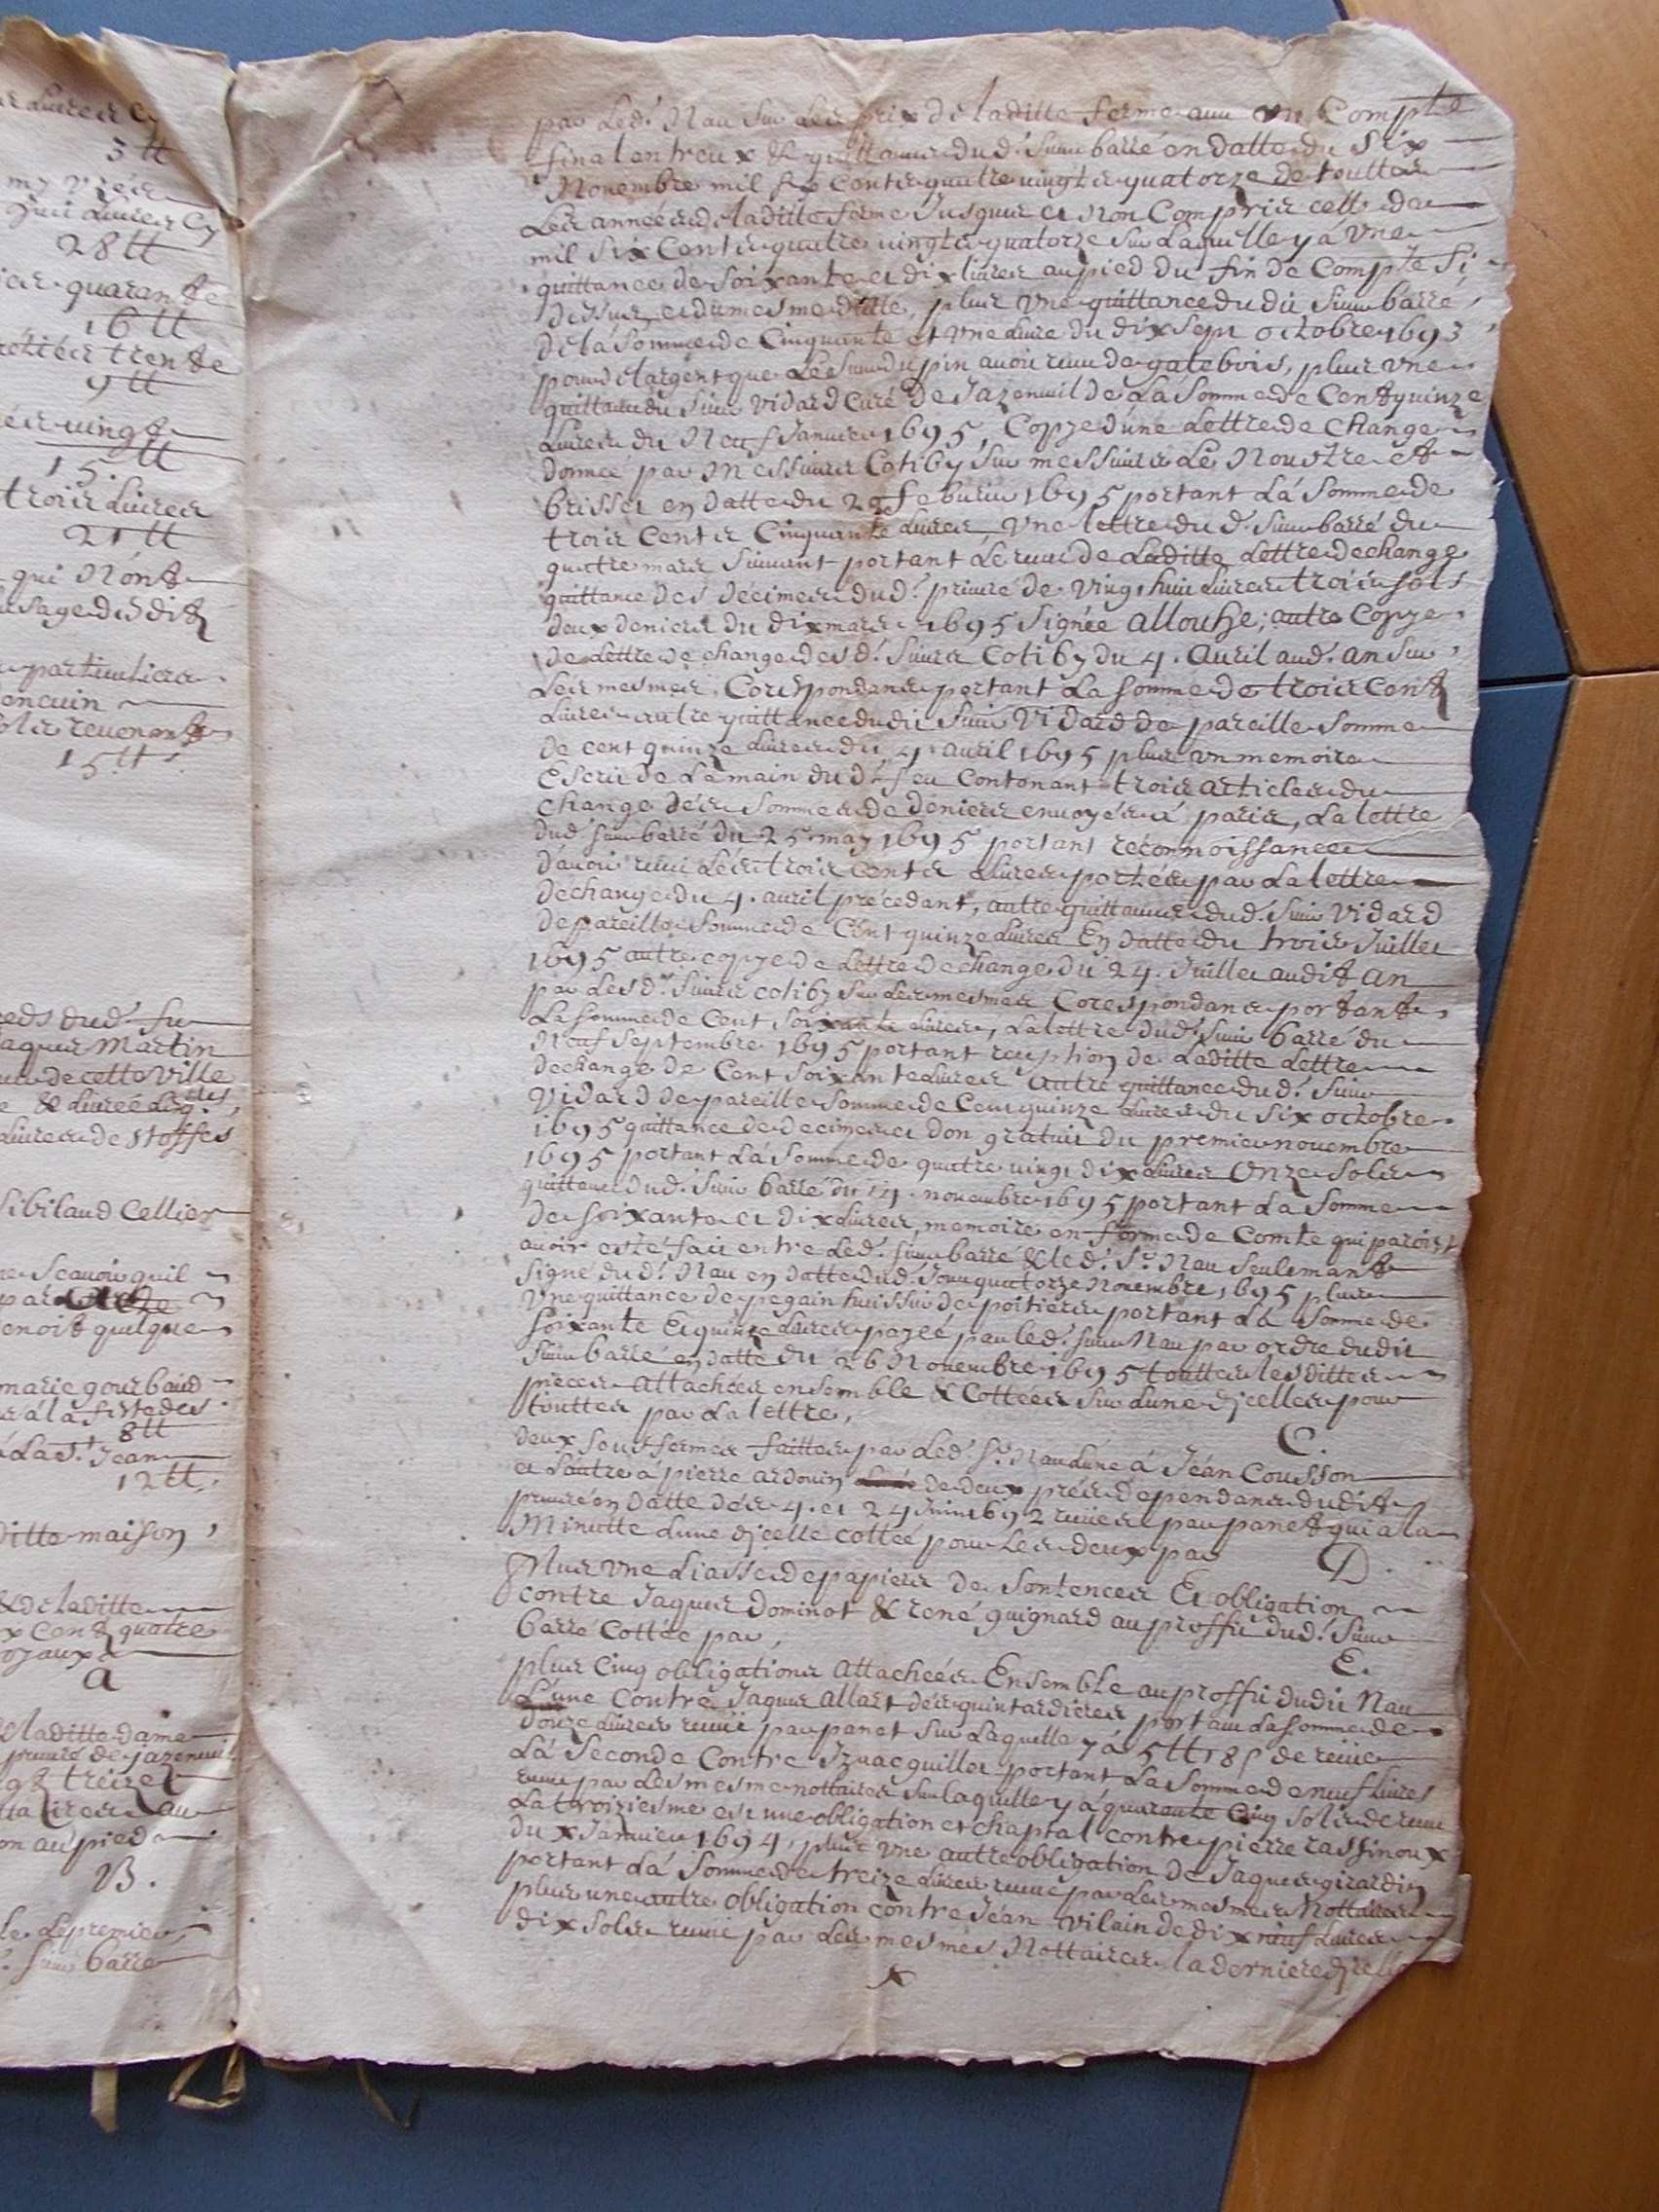 es Livres Cy
3 tt
28 tt
quarante
16 tt
trente
9 tt
vingt
15. tt
trois Livres
21 tt
qui N'ont
usage desdits
particuliers
revenants
15 tt
dud. feu
Jaques Martin
de cette Ville
Livres de stoffes
Sibilaud Cellier
scavoir quil
quelque
marie gourbaud
a la feste des
8 tt
a La St. Jean
12 tt.
ditte maison
& de laditte
cent quatre
a
laditte dame
prieuré de jazeneuil
treize
au pied
B.
le premier
Sieur barré
par Led. Nau sur Les prix de laditte ferme avec un Compte
final entreux & quittance dud. Sieur barré en datte du Six
Novembre mil six Cents quatre vingts quatorze de touttes
Les années de laditte ferme Jusques et Non Compris celle de
mil six Cents quatre vingts quatorze sur Laquelle y a Une
quittance de Soixante et dix livres au pied du fin de Compte Si
dessus, et du mesme datte, plus Une quittance du dit Sieur barré
de la Somme de Cinquante et Une Livre du dix sept octobre 1693
pour de Largent que Le Sieur dupin avoit receu de galebois, plus Une
quittance du Sieur Vidard Curé de Jazeneuil de La Somme de Cent quinze
Livres du Neuf Janvier 1695, Copye d'une Lettre de Change
donnée par Messieurs Cotiby sur messieurs Le Noustre et
brisset en datte du 28 feburier 1695 portant La Somme de
trois Cents Cinquante Livres, Une lettre du d. Sieur barré du
quatre mars Suivant portant Le receu de Laditte Lettre de change
quittance des decimes dud. prieuré de Vingt huit Livres trois sols
deux deniers du dix mars 1695 Signée allouhe; autre Copye
de Lettre de change des d. Sieurs Cotiby du 4. Avril aud. an Sur
Les mesmes Corespondans portant La Somme de trois Cent
Livres autre quittance du dit Sieur Vidard de pareille Somme
de cent quinze Livres du 4 avril 1695 plus un memoire
Escrit de La main du d. feu Contenant trois articles du
Change des Sommes de deniers envoyés a paris, La lettre
dud. Sieur barré du 25 may 1695 portant reconnoissance
d'avoir receu Les trois Cents Livres portées par La lettre
de change du 4. avril précedant, autre quittance dud. Sieur Vidard
de pareille Somme de Cent quinze Livres En datte du trois Juillet
1695 autre copye de Lettre de change du 24. Juillet audit an
par Lesd. Sieurs cotiby Sur Les mesmes Corespondans portant
La Somme de Cent Soixante Livres, La lettre dud. Sieur barré du
Neuf Septembre 1695 portant reception de Laditte Lettre
de change de Cent Soixante Livres autre quittance dud. Sieur
Vidard de pareille Somme de Cent quinze Livres du Six octobre
1695 quittance de decimes et don gratuit du premier novembre
1695 portant La Somme de quatre vingt dix Livres Onze Sols
quittance dud. Sieur barré du 14. novembre 1695 portant La Somme
de soixante et dix Livres, memoire en forme de Comte qui paroist
avoir esté fait entre Led. Sieur barré & led. Sr. Nau Seulemant
Signé dud. Nau en datte dud. Jour quatorze Novembre 1695 plus
Une quittance de pegain huissier de poitiers portant La Somme de
Soixante Et quinze Livres payée par led. Sieur Nau par ordre du dit
Sieur barré en datte du 26 Novembre 1695 touttes lesdittes
pieces attachées ensemble & Cottées Sur L'une d'jcelles pour
touttes par La lettre,
C.
deux Sous fermes faittes par Led. Sr. Nau L'une á Jean Cousson
et L'autre á pierre ardouin de deux prés dependans dudit
prieuré en datte des 4. et 24 Juin 1692 receues par panet qui a la
Minutte L'une d'jcelle cottée pour Les deux par
D.
Plus Une Liasse de papiers de Sentences Et obligation
contre Jaques dominot & rené guignard au proffit dud. Sieur
barré Cottée par,
E.
plus Cinq obligations attachées Ensemble au proffit du dit Nau
L'une Contre Jaques allart des quintardieres portant La Somme de
douze Livres receue par panet Sur Laquelle y a 5 tt 18 s de receue
La Seconde Contre Izaac guillet portant La Somme de neuf Livres
receue par Les mesme nottaires Sur laquelle y a quarante Cinq Sols de receu
La troiziesme est une obligation et chaptal contre pierre rassinoux
du x Janvier 1694, plus Une autre obligation de Jaques girardin
portant La Somme de treize Livres receue par Les mesmes Nottaires
plus une autre obligation contre Jean Vilain de dix neuf Livres
dix Sols receue par Les mesmes Nottaires la derniere d'jcelle
x